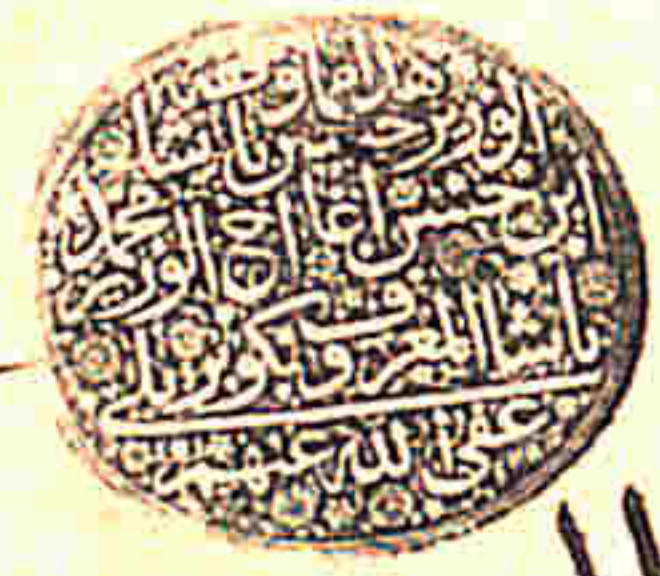 هذا ما وقفه
الوزير حسين پاشا
ابن حسن اغا اخ الوزير محمد
پاشا المعروف بكوپريلى
عفى الله عنهم